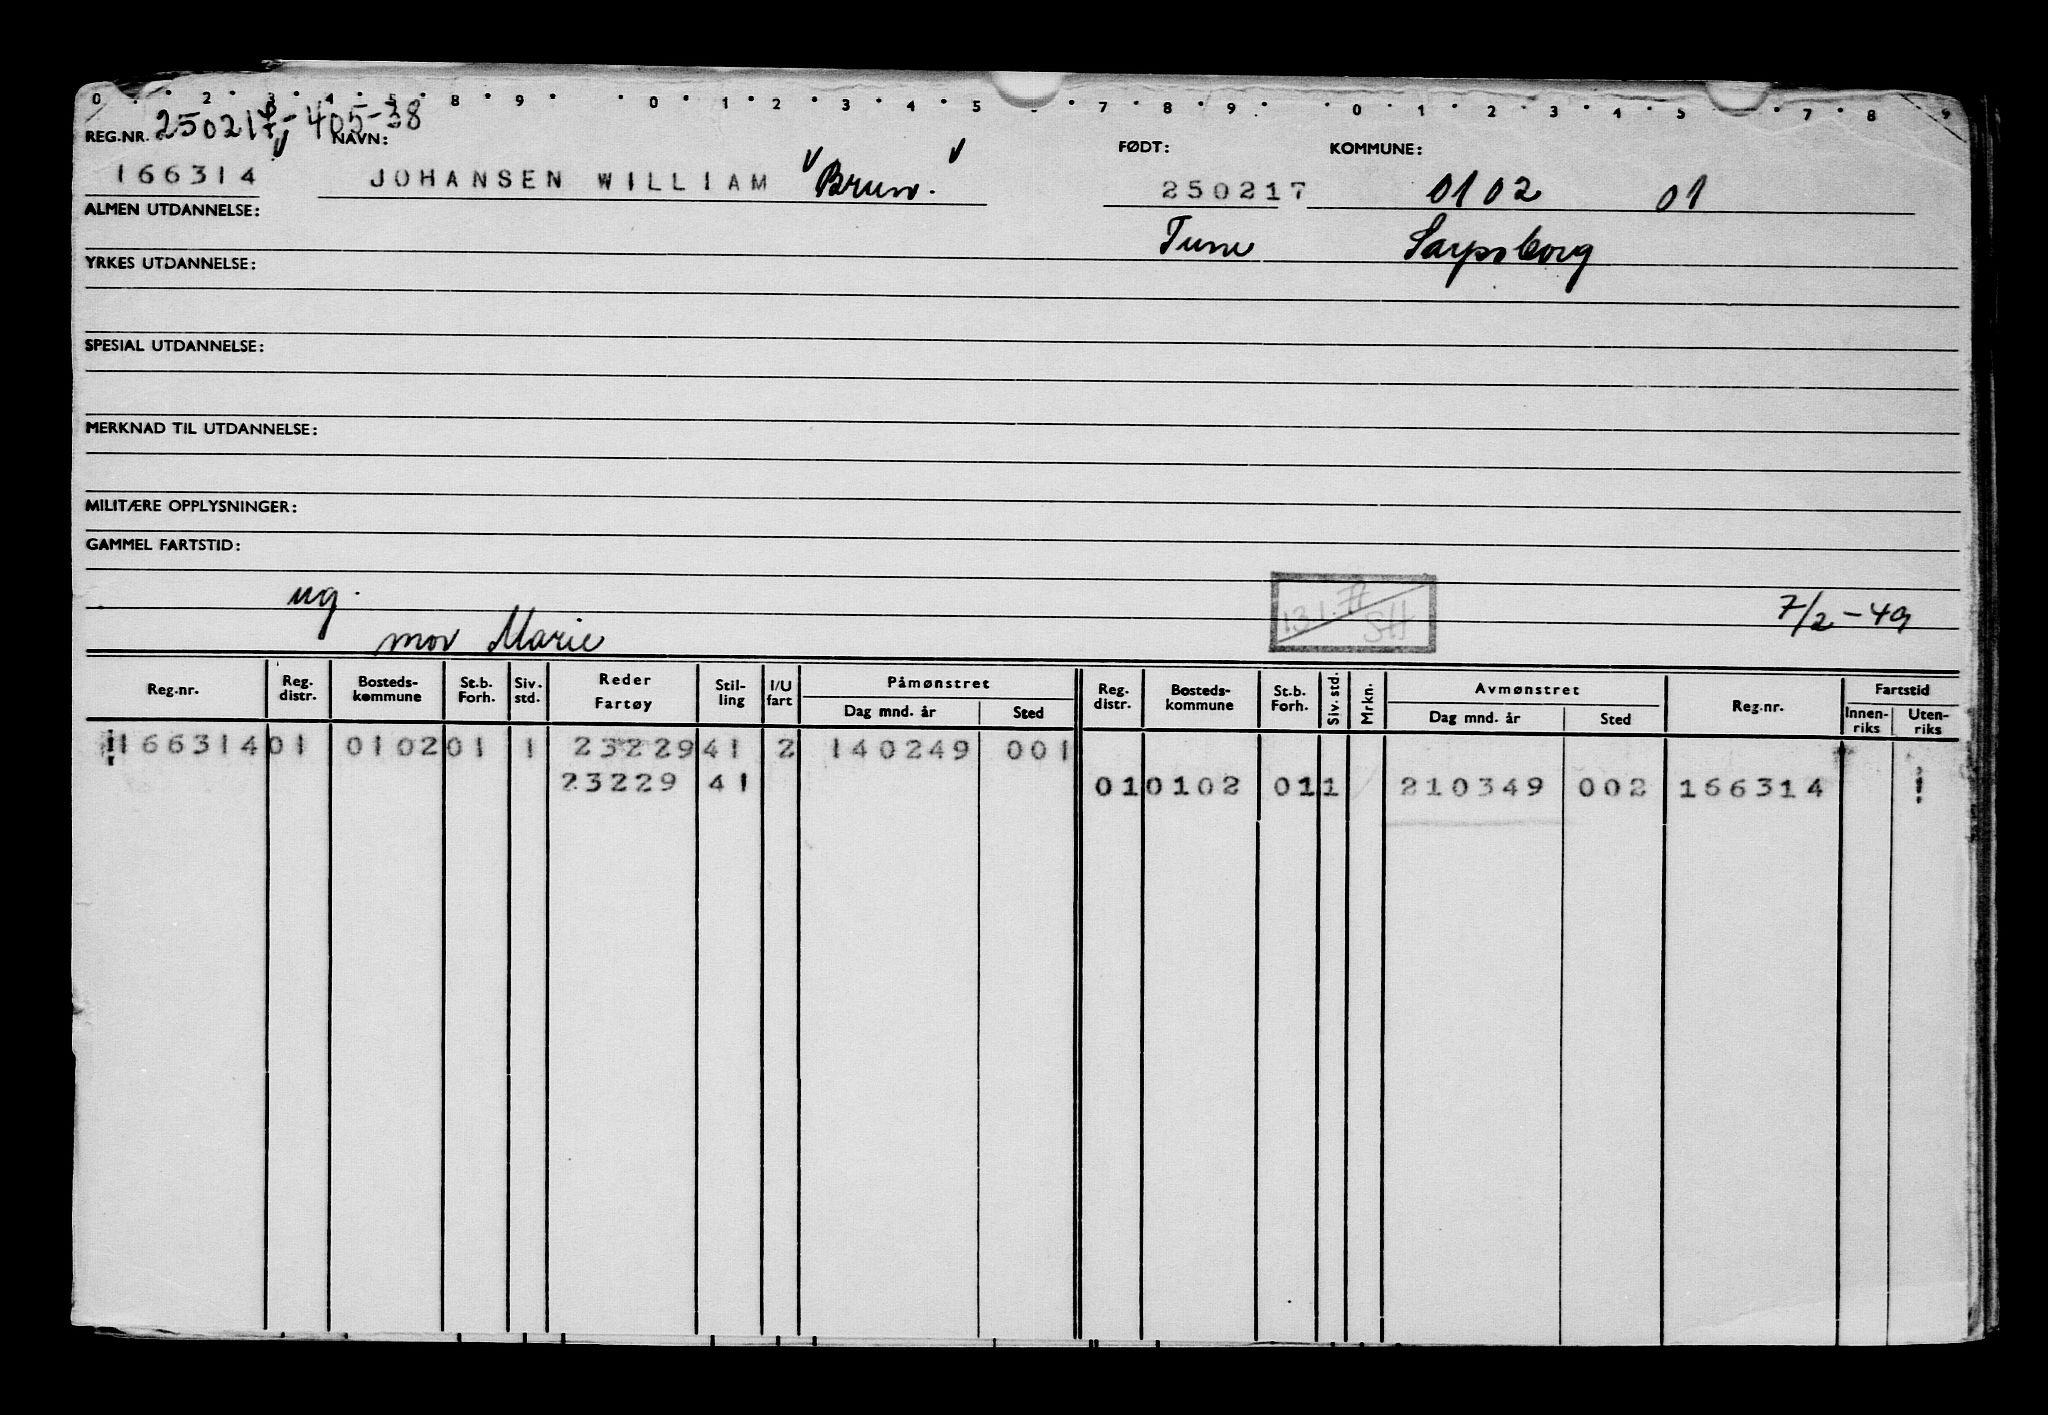 0 · · 2 · 3 · 4 · 5 · 8 · 9 · · 0 · 1 · 2 · 3 · 4 · 5 · 7 · 8 · 9 · · 0 · 1 · 2 · 3 · 4 · 5 · 7 · 8 · 9
REG.NR. 250217 - 405-38 NAVN: FØDT: KOMMUNE:
166314 JOHANSEN WILLIAM "Brun." 250217 0102 01
ALMEN UTDANNELSE: Tune Sarpsborg
YRKES UTDANNELSE:
SPESIAL UTDANNELSE:
MERKNAD TIL UTDANNELSE:
MILITÆRE OPPLYSNINGER:
GAMMEL FARTSTID:
ug. 7/2-49
mor Marie
Reg.nr. Reg. distr. Bosteds- kommune St.b. Forh. Siv. std. Reder Fartøy Stil- ling I/U fart Påmønstret Dag mnd. år Sted Reg. distr. Bosteds- kommune St.b. Forh. Siv. std. Mrkn. Avmønstret Dag mnd. år Sted Reg.nr. Fartstid Innen- riks Uten- riks
!166314 01 0102 01 1 23229 41 2 140249 001
23229 41 01 0102 01 1 210349 002 166314 !